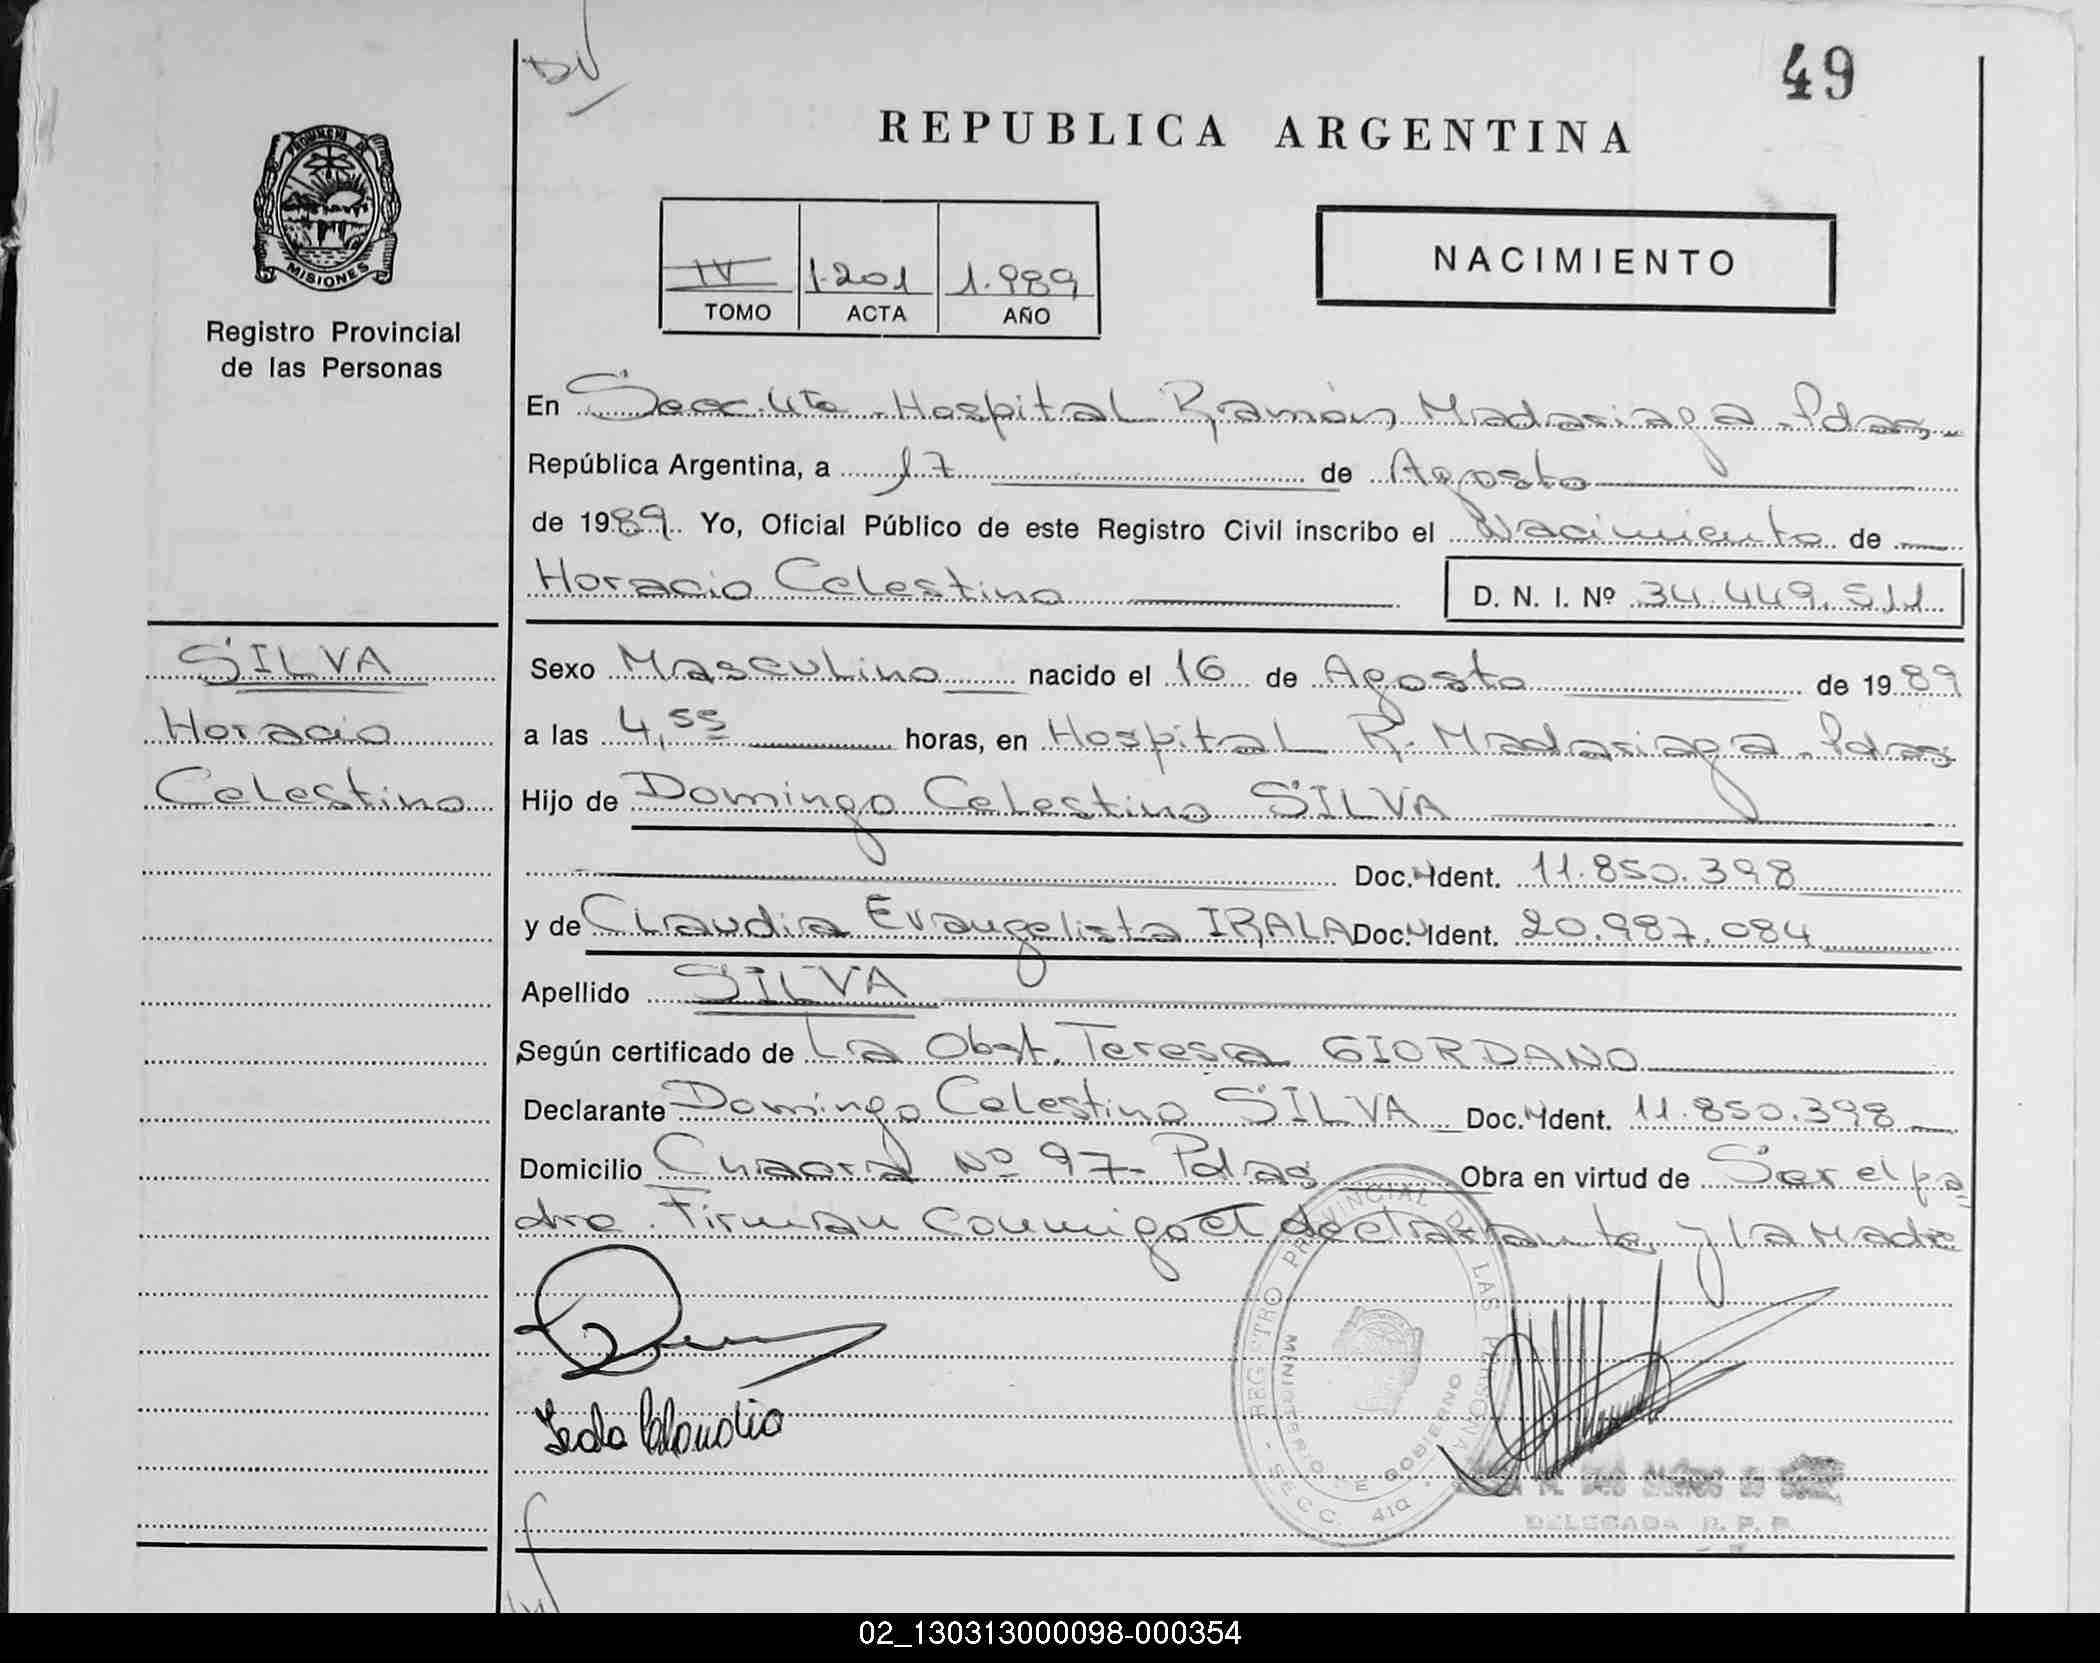 49
REPUBLICA ARGENTINA
PROVINCIA DE
MISIONES
Registro Provincial
de las Personas
NACIMIENTO
IV 1.201 1.989
TOMO ACTA AÑO
En Secc. 4ta Hospital Ramón Madariaga - Pdas.-
República Argentina, a 17 de Agosto
de 1989. Yo, Oficial Público de este Registro Civil inscribo el Nacimiento de
Horacio Celestino
D. N. I. Nº 34.449.511
SILVA
Horacio
Celestino
Sexo Masculino nacido el 16 de Agosto de 1989
a las 4,55 horas, en Hospital R. Madariaga - Pdas
Hijo de Domingo Celestino SILVA
Doc. Ident. 11.850.398
y de Claudia Evangelista IRALA Doc. Ident. 20.987.084
Apellido SILVA
Según certificado de La Obst. Teresa GIORDANO
Declarante Domingo Celestino SILVA Doc. Ident. 11.850.398
Domicilio Chacra Nº 97 - Pdas Obra en virtud de Ser el pa
dre. Firman conmigo el declarante y la Madre
REGISTRO PROVINCIAL DE LAS PERSONAS
MINISTERIO DE GOBIERNO
SECC. 4ta
Claudia
DELEGADA R. P. P.
02_130313000098-000354